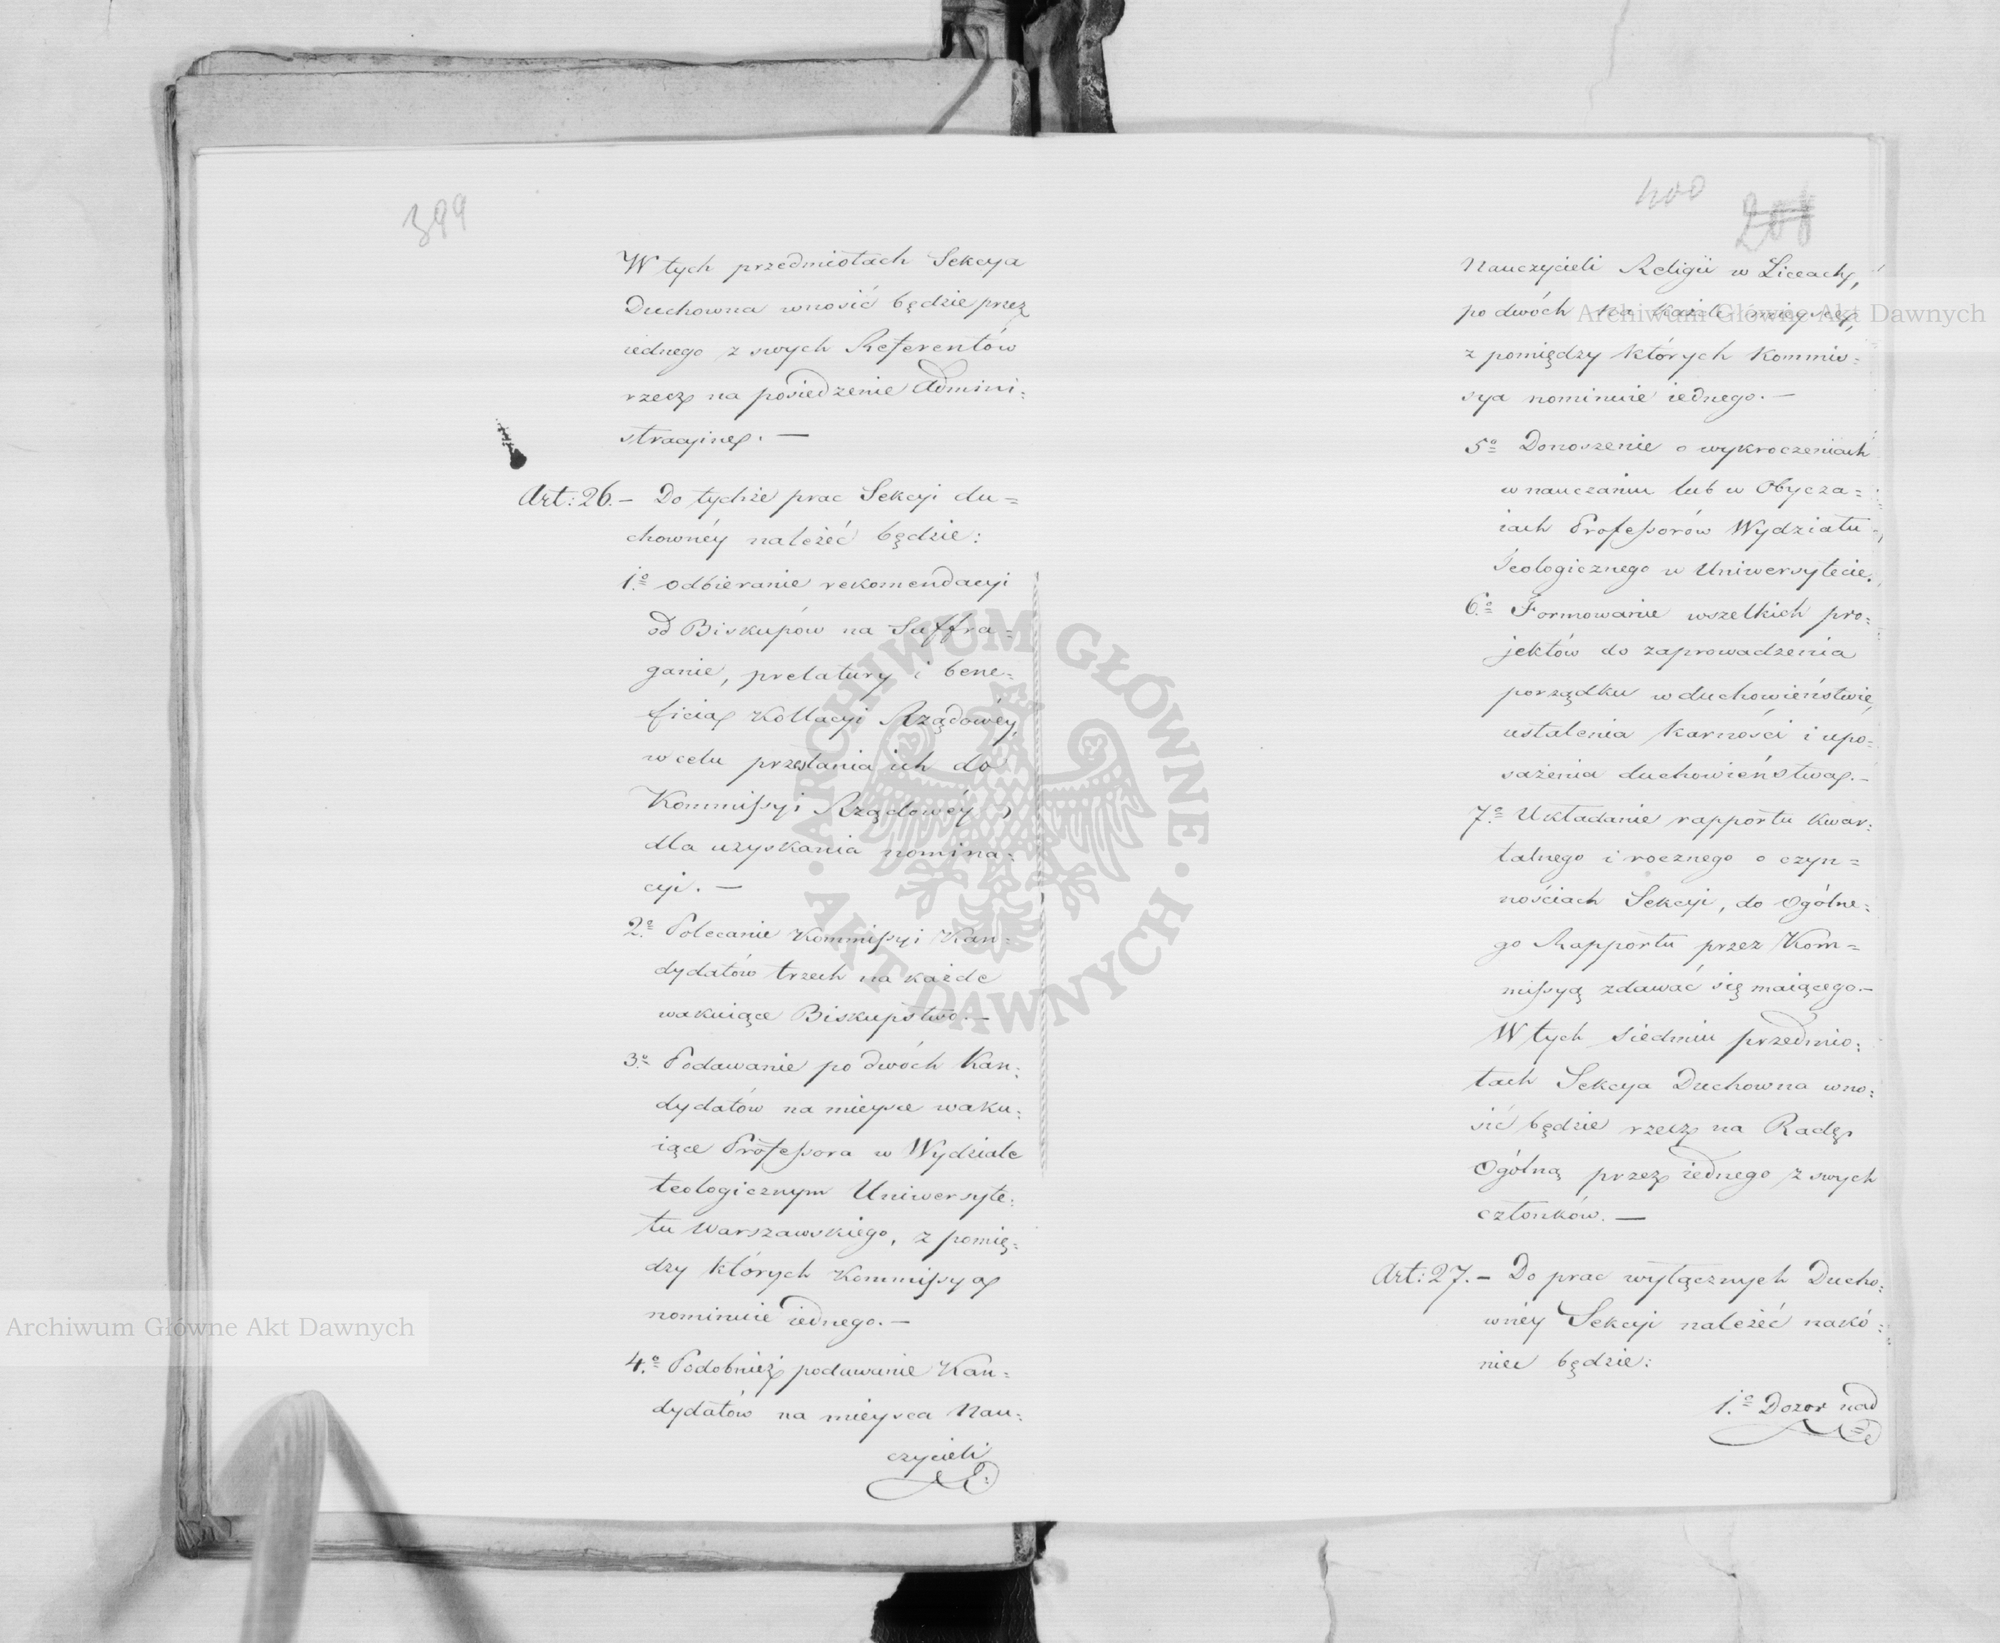 399
W tych przedmiotach Sekcya
Duchowna wnosić będzie przez
iednego z swych Referentów
rzecz na posiedzenie Admini=
stracyine. —
Art: 26. — Do tychże prac Sekcyi du=
chownéy należéć będzie:
1.o odbieranie rekomendacyi
od Biskupów na Suffra=
ganie, prelatury i bene=
ficia Kollacyi Rządowéy,
w celu przesłania ich do
Kommissyi Rządowéy,
dla uzyskania nomina=
cyi. —
2.o Polecanie Kommissyi Kan=
dydatów trzech na każde
wakuiące Biskupstwo. —
3.o Podawanie po dwóch Kan=
dydatów na mieysce waku=
iące Professora w Wydziale
teologicznym Uniwersyte=
tu Warszawskiego, z pomię=
dzy których Kommissya
nominuie iednego. —
4.o Podobnież podawanie Kan=
dydatów na mieysca Nau=
czycieli
400
Nauczycieli Religii w Liceach,
po dwóch na każde mieysce,
z pomiędzy których Kommis=
sya nominuie iednego. —
5o Donoszenie o wykroczeniach
w nauczaniu lub w Obycza=
iach Professorów Wydziału
Teologicznego w Uniwersytecie.
6.o Formowanie wszelkich pro=
jektów do zaprowadzenia
porządku w duchowieństwie,
ustalenia karności i upo=
sażenia duchowieństwa. —
7.o Układanie rapportu kwar=
talnego i rocznego o czyn=
nościach Sekcyi, do Ogólne=
go Rapportu przez Kom=
missyą zdawać się maiącego. —
W tych siedmiu przedmio=
tach Sekcya Duchowna wno=
sić będzie rzecz na Radę
Ogólną przez iednego z swych
członków. —
Art: 27. — Do prac wyłącznych Ducho=
wnéy Sekcyi należéć nakó=
niec będzie:
1.o Dozor nad
Archiwum Główne Akt Dawnych
Archiwum Główne Akt Dawnych
ARCHIWUM GŁÓWNE · AKT DAWNYCH ·